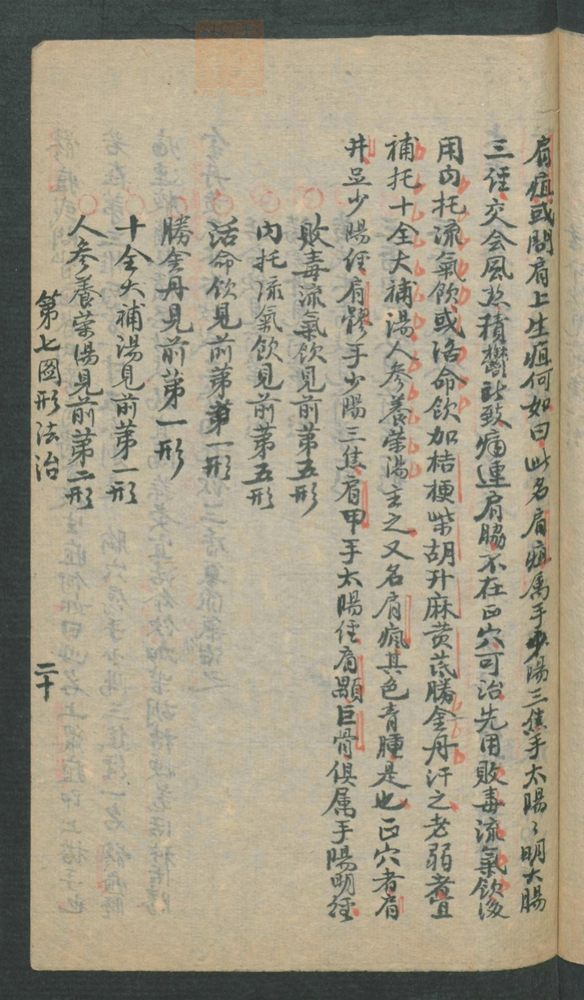 肩疽或問肩上生疽何如曰此名肩疽属手少陽三焦手太陽々明大腸
三徑交会風热積鬱所致痛連肩脇不在正穴可治先用敗毒流氣飲後
用内托流氣飲或活命飲加桔梗柴胡升麻黄芪勝金丹汗之老弱者宜
補托十全大補湯人参養荣湯主之又名肩瘋其色青腫是也正穴者肩
井足少陽徑肩髎手少陽三焦肩甲手太陽徑肩顒巨骨俱属手陽明徑
敗毒流氣飲見前第五形
内托流氣飲見前第五形
活命飲見前第一形
勝金丹見前第一形
十全大補湯見前第一形
人参養荣湯見前第二形
第七图形法治 二十